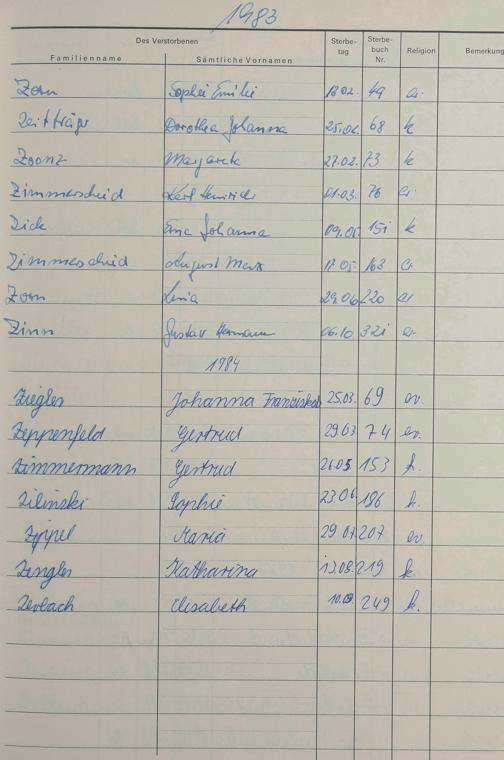 1983
Des Verstorbenen Sterbe- Sterbe- Religion Bemerkung
Familienname Sämtliche Vornamen tag buch Nr.
Zorn Sophie Emilie 18.02. 49 ev.
Zeitträger Dorothea Johanna 25.02. 68 k
Zoonz Margarete 27.02. 73 k
Zimmerscheid Karl Heinrich 01.03. 76 ev.
Zick Erna Johanna 09.05. 151 k
Zimmerscheid August Max 17.05. 163 ev.
Zorn Lina 29.06 220 ev
Zinn Gustav Hermann 06.10 321 ev.
1984
Ziegler Johanna Franziska 25.03. 69 ev.
Zeppenfeld Gertrud 29.03 74 ev.
Zimmermann Gertrud 26.05 153 k.
Zilinski Sophie 23.06. 186 k.
Zippel Maria 29.07 207 ev.
Zengler Katharina 13.08. 219 k.
Zerlach Elisabeth 10.09. 249 k.